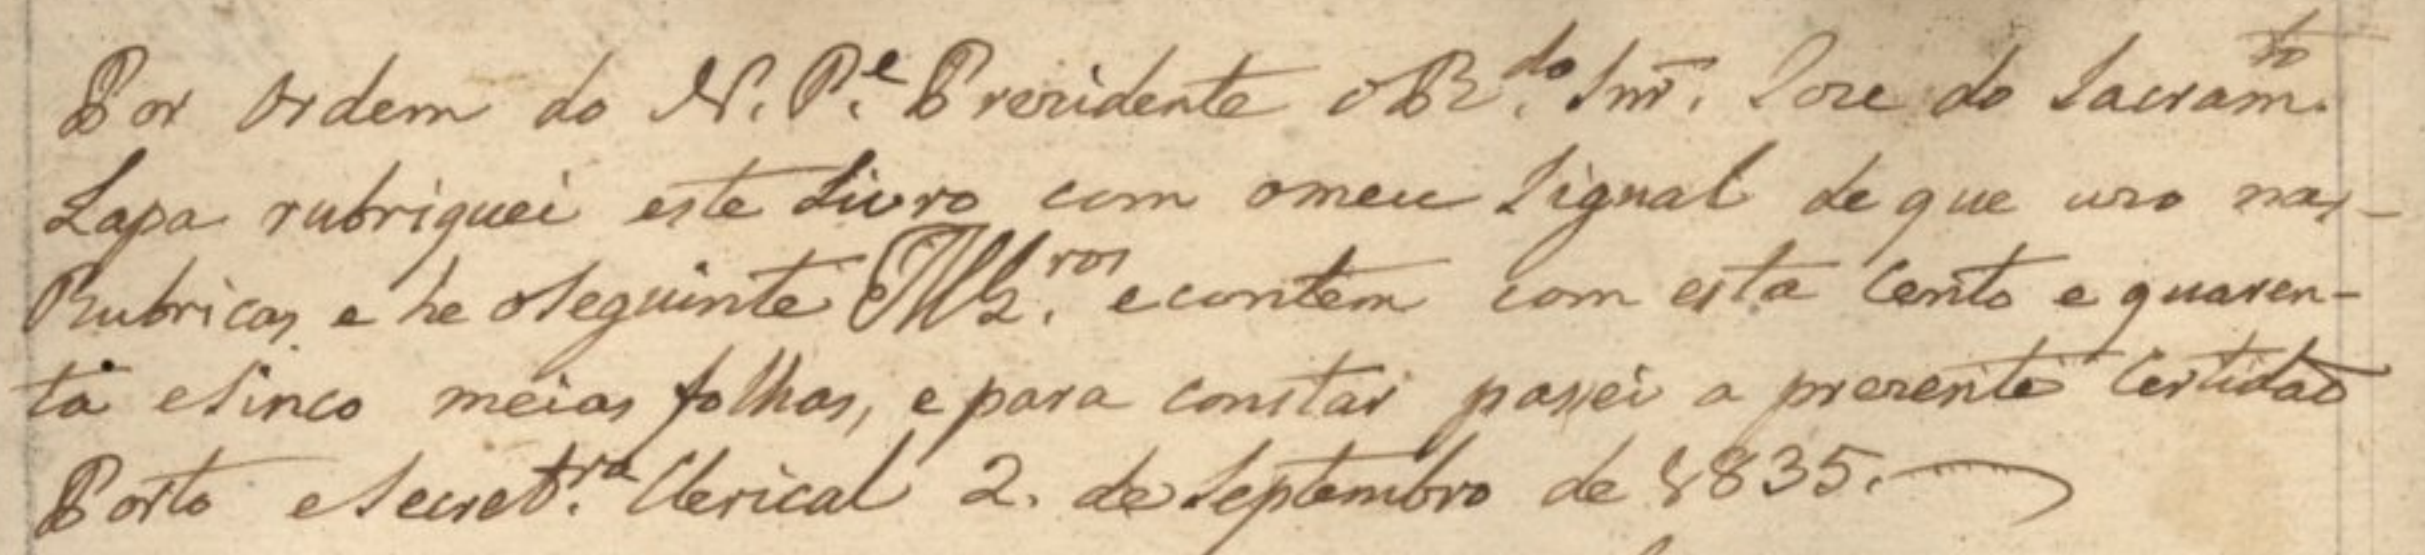 Por ordem do N. P.e Prezidente o R.do Snr. Joze do Sacram.to
Lapa rubriquei este Livro com o meu Signal de que uzo nas
Rubricas, e he o Seguinte e contem com esta Cento e quaren-
ta e Sinco meias folhas, e para constar passei a prezente Certidaõ
Porto e Secret.ra Clerical 2. de Septembro de 1835.